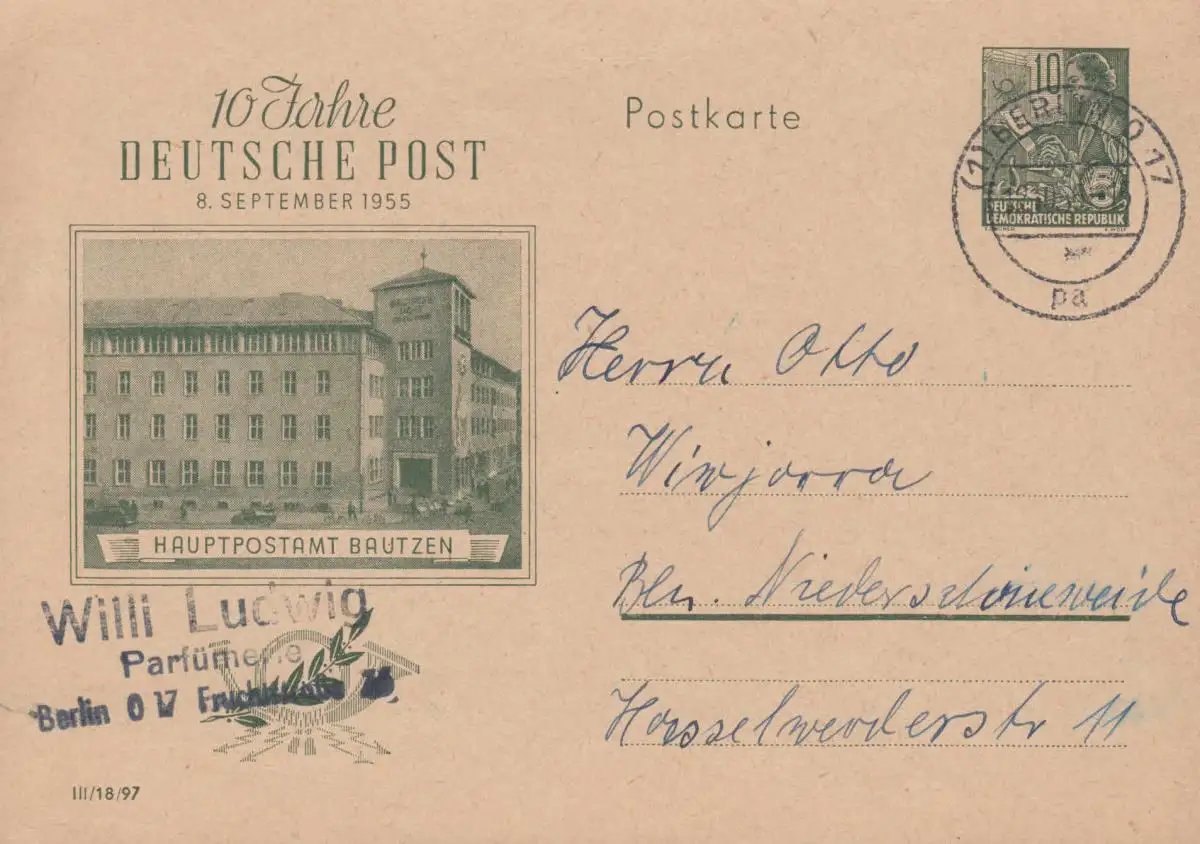 10 Jahre
DEUTSCHE POST
8. SEPTEMBER 1955
HAUPTPOSTAMT BAUTZEN
Willi Ludwig
Parfümerie
Berlin O 17 Fruchtstraße
III/18/97
Postkarte
10
5
DEUTSCHE
DEMOKRATISCHE REPUBLIK
(1) BERLIN O 17
pa
Herrn Otto
Wiwjorra
Bln. Niederschöneweide
Hasselwerderstr 11